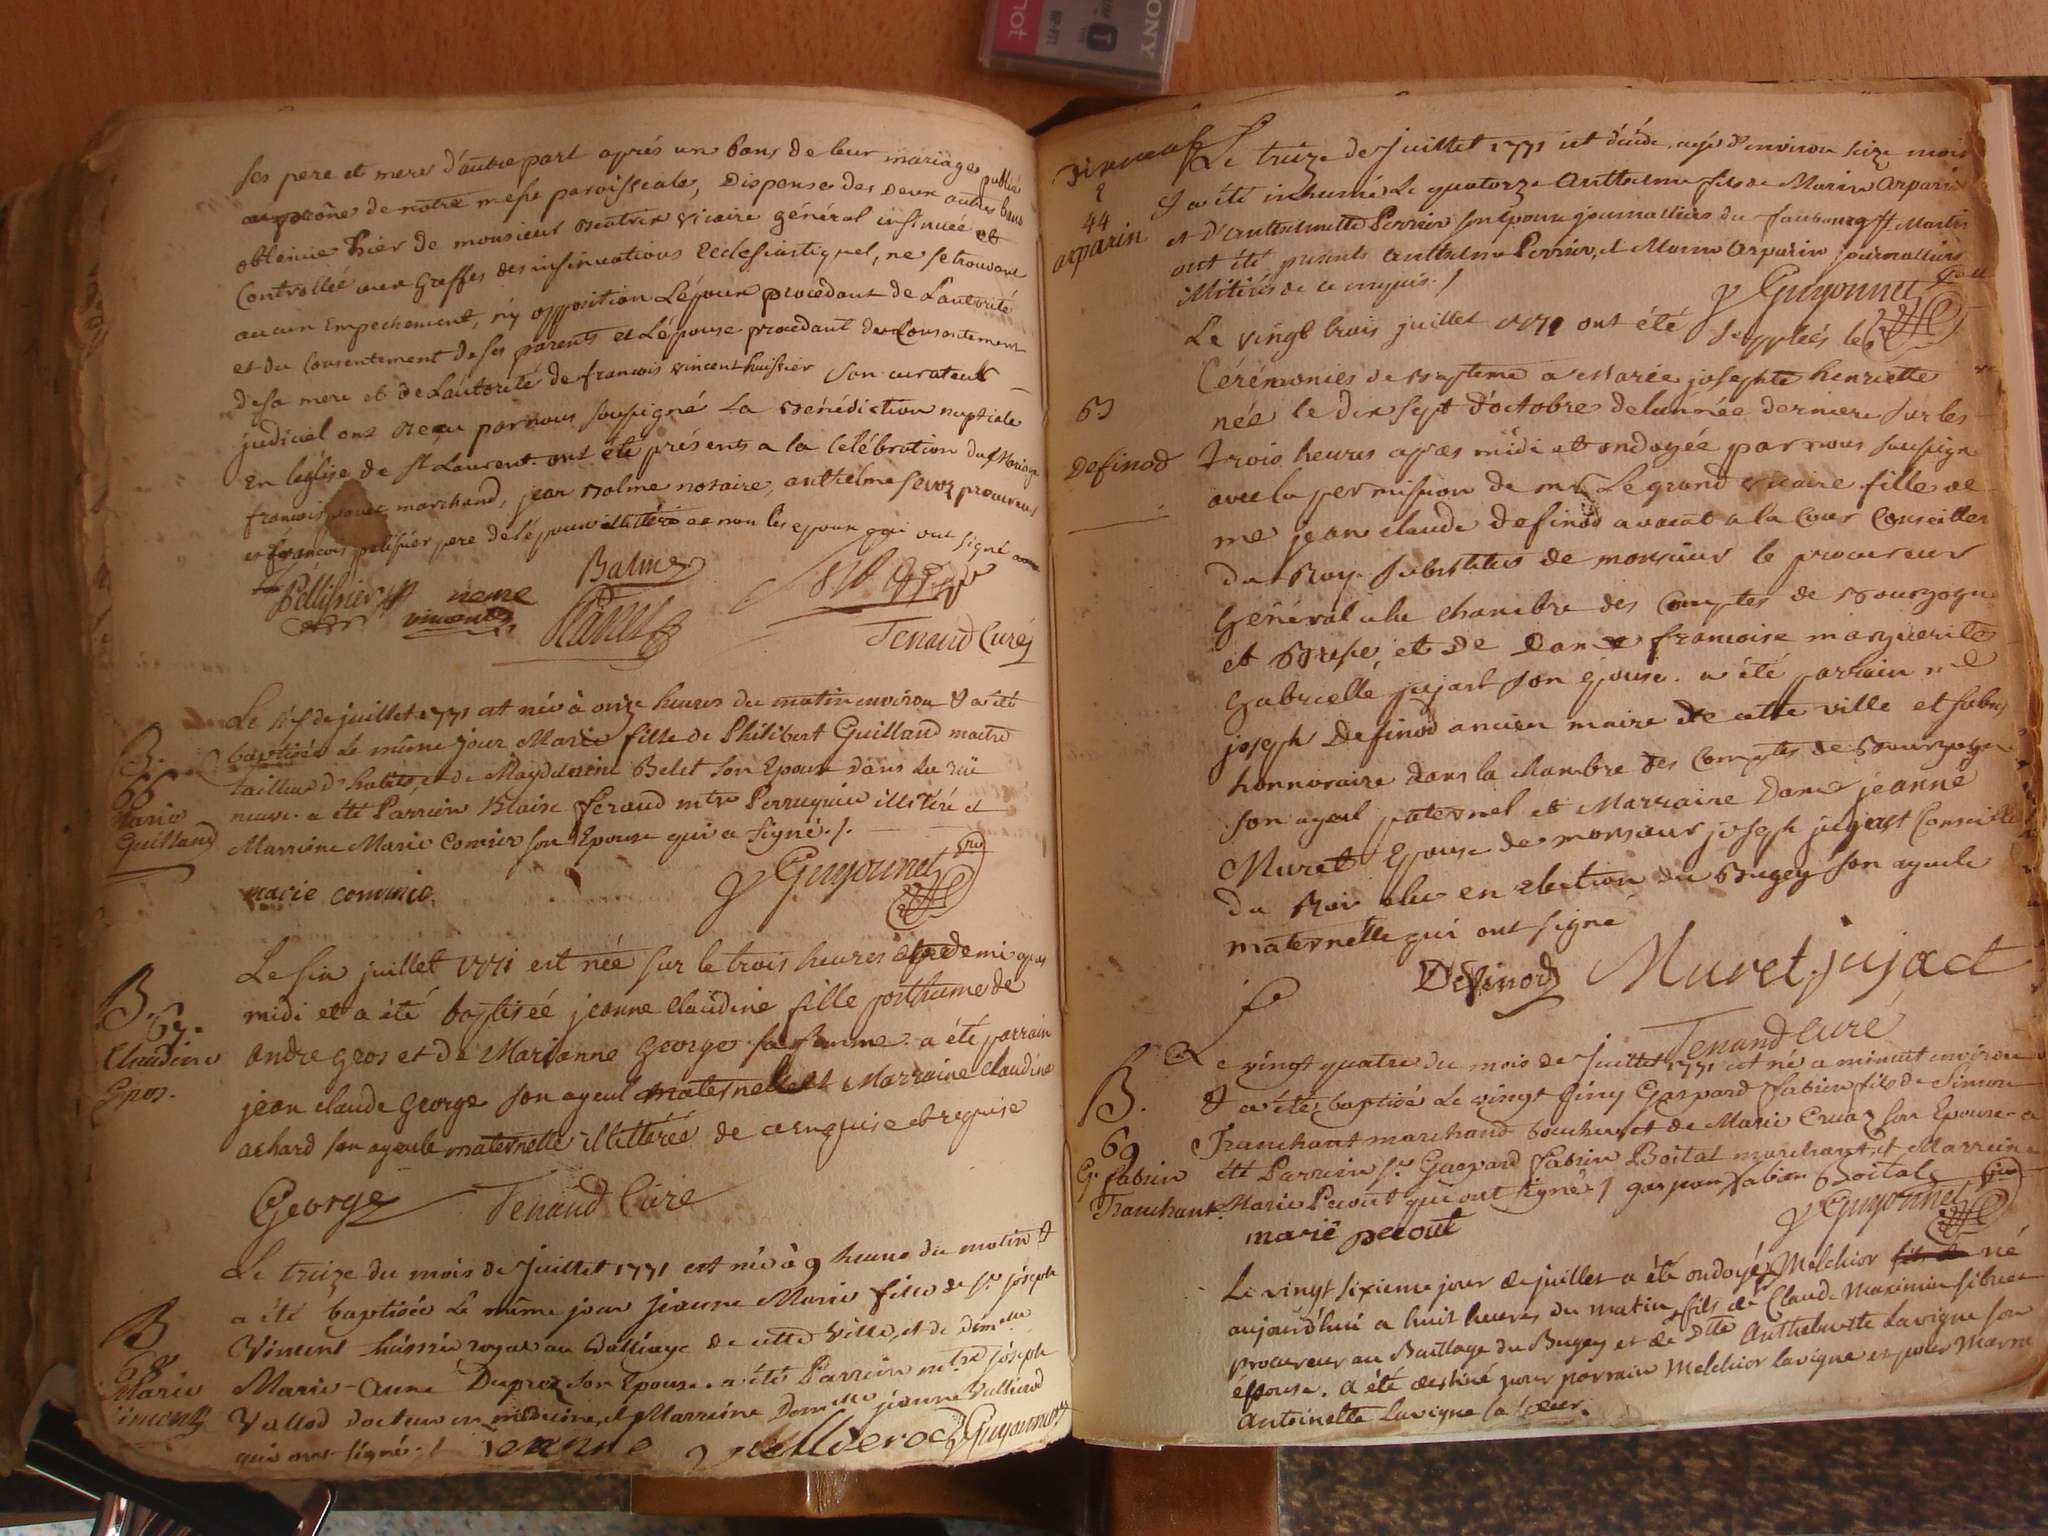 ses pere et mere d'autre part aprés un bans de leur mariage publié
au prône de notre messe paroissiale, Dispense des deux autres bans
obtenue hier de monsieur vicaire général insinuée et
Controllée aux Greffes des insinuations Ecclesiastiques, ne se trouvant
aucun Empechement, n'y opposition L'époux procedant de L'autorité
et du Consentement de ses parents et L'épouse procedant du Consentement
de sa mere et de L'autorité de francois vincent huissier son curateur
judiciel ont reçu par nous soussigné La Bénédiction nuptiale
En l'église de St Laurent. ont été présents a la Celébration du Mariage
francois marchand, jean Balme notaire, anthelme Sevoz procureur
et françois pelissier pere de lépoux illitéré et non les epoux qui ont signé
Péllissier neme Balme
vincent
Tenand Curé
Le six de juillet 1771 est née à onze heures du matin environ & a été
baptisée Le même jour Marie fille de Philibert Guilland maitre
tailleur d'habits, et de Magdeleine Belet son Epouse dans La rüe
neuve. a été Parrein Blaise feraud mtre Perruquier illitéré et
Marreine Marie Comier son Epouse qui a signé./.
B.
66
Marie
Guilland
marie
Guyonnet
Le six juillet 1771 est née sur le trois heures et demi apres
midi et a été baptisée jeanne Claudine fille posthume de
andre gros et de Marianne George sa femme. a été parrain
jean claude George son ayeul maternelle et Marraine Claudine
achard son ayeule maternelle illittérée de ce enquise et requise
B.
67.
Claudine
Gros.
George Tenand Curé
Le treize du mois de Juillet 1771 est née à 9 heures du matin &
a été baptisée Le même jour Jeanne Marie fille de Sr. joseph
Vincent huissier royal au Balliage de cette Ville, et de Demelle
Marie-Anne Duproz son Epouse. a été Parrein mtre joseph
Vallod docteur en medecine, et Marreine Demelle jeanne Vallierod
qui ont signé./
B
68
Marie
Vincent
jeanne vallierod Guyonnet
Le treize de Juillet 1771 est décédé agé d'environ seize mois
& a été inhumé Le quatorze Anthelme fils de Marin Arparin
et d'Anthelmette Perrier son Epouse journalliers du faubourg St Martin
ont été presents Anthelme Perrier, et Marin Arparin journalliers
illitérés de ce enquis./
44
arparin
Guyonnet
Le vingt trois juillet 1771 ont été supplées les
Cérémonies de Bapteme a Marie josephte henriette
née le dix sept d'octobre de l'année derniere sur les
trois heures apres midi et ondoyée par nous soussigné
avec la permission de mr. Le grand vicaire fille de
me jean claude Definod avocat a la Cour Conseiller
du Roy substitut de monsieur le procureur
Général a la chambre des Comptes de Bourgogne
et Bresse, et de Dame francoise marguerite
Gabrielle jujact son epouse. a été parrain me
joseph Definod ancien maire de cette ville et
honnoraire dans la chambre des Comptes de Bourgogne
son ayeul paternel et Marraine Dame jeanne
Muret Epouse de monsieur joseph jujact Conseiller
du Roi elu en election du Bugey son ayeule
maternelle qui ont signé
Definod
Definod Muret jujact
Tenand Curé
Le vingt quatre du mois de Juillet 1771 est né a minuit environ
& a été baptisé Le vingt cinq Gaspard Fabien fils de Simon
Tranchant marchand boucher et de Marie Cruaz son Epouse. a
été Parrein Sr. Gaspard Fabien Boital marchant, et Marreine
Marie Pecout qui ont signé./ gaspard fabien Boital
B.
69
G. fabien
Tranchant
marie pecout Guyonnet
Le vingt sixieme jour de juillet a été ondoyé Melchior fils de né
aujourd'hui a huit heures du matin, fils de Claude Maximin
procureur au Baillage du Bugey et de Dlle Anthelmette Lavigne son
épouse. A été destiné pour parrain Melchior Lavigne et pour Marne
Antoinette Lavigne sa soeur.
SONY